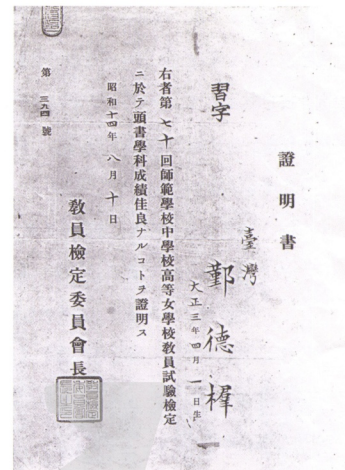 證明書
臺灣
鄞德樨
大正三年四月一日生
習字
右者第七十回師範學校中學校高等女學校教員試驗檢定
ニ於テ頭書學科成績佳良ナルコトヲ證明ス
昭和十四年八月十日
教員檢定委員會長
第三九四號